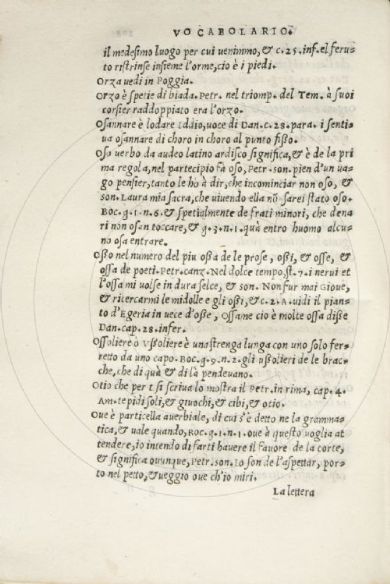 VOCABOLARIO.
il medesimo luogo per cui venimmo, & c. 25. inf. el feru
to ristrinse insieme l'orme, cio è i piedi.
Orza vedi in Poggia.
Orzo è spetie di biada. Petr. nel triomp. del Tem. à suoi
corsier raddoppiato era l'orzo.
Osannare è lodare Iddio, uoce di Dan. c. 28. para. i senti-
ua osannare di choro in choro al punto fisso.
Oso uerbo da audeo latino ardisco significa, & è de la pri
ma regola, nel partecipio fà oso, Petr. son. pien d'un ua-
go pensier, tanto le ho à dir, che incominciar non oso, &
son. Laura mia sacra, che uiuendo ella nõ sarei stato oso.
Boc. g. 1. n. 6. & spetialmente de frati minori, che dena
ri non osan toccare, & g. 3. n. 1. quà entro huomo alcu-
no osa entrare.
Osso nel numero del piu ossa de le prose, ossi, & osse, &
ossa de poeti. Petr. canz. Nel dolce tempo, st. 7. i nerui et
l'ossa mi uolse in dura selce, & son. Non fur mai Gioue,
& ricercarmi le midolle e gli ossi, & c. 2. A. uidi il pian-
to d'Egeria in uece d'osse, Ossame cio è molte ossa disse
Dan. cap. 28. infer.
Ossoliere o Vssoliere è una strenga lunga con uno solo fer-
retto da uno capo. Boc. g. 9. n. 2. gli ussolieri de le brac-
che, che di quà & di là pendeuano.
Otio che per t si scriua lo mostra il Petr. in rima, cap. 4.
Am. tepidi soli, & giuochi, et cibi, et otio.
Oue è particella auerbiale, di cui s'è detto ne la gramma-
tica, & uale quando, Boc. g. 1. n. 1. oue à questo uoglia at
tendere, io intendo di farti hauere il fauore de la corte,
& significa oununque, Petr. son. Io son de l'aspettar, por-
to nel petto, & ueggio oue ch'io miri.
La lettera